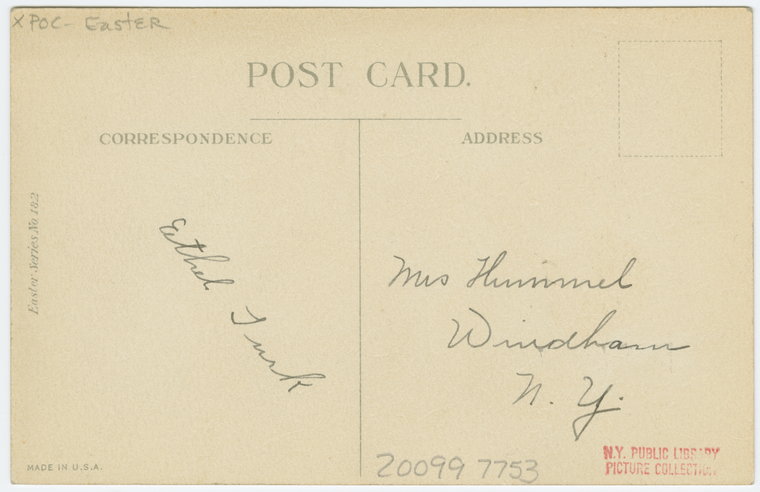 XPOC- EasTER
POST CARD.
CORRESPONDENCE
ADDRESS
Easter Series No 182
Ethel Turk
Mrs Hummel
Windham
N. Y.
MADE IN U.S.A.
20099 7753
N.Y. PUBLIC LIBRARY
PICTURE COLLECTION